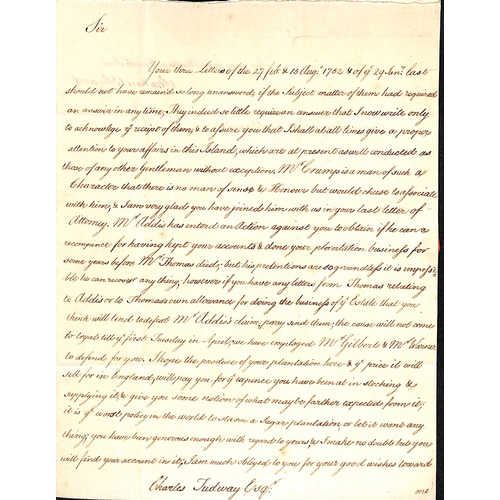 Sir
Your three letters of the 27 feb & 15 Augt. 1752 & of ye 29 Janry. last
should not have remain'd so long unanswered, if the Subject matter of them had required
an answer in any time; They indeed so little require an answer that I now write only
to acknowlege ye receipt of them, & to assure you that I shall at all times give a proper
attention to your affairs in this Island, which are at present as well conducted as
those of any other Gentleman without exception. Mr. Crump is a man of such a
Character that there is no man of sense & Honour but would chuse to associate
with him, & I am very glad you have joined him with us in your last letter of
Attorney. Mr. Addis has entered an Action against you to obtain if he can a
recompence for having kept your accounts & done your plantation business for
some years before Mr. Thomas died; but his pretentions are so groundless it is imposs:
ble he can recover any thing; however if you have any letter from Thomas relating
to Addis or to Thomas's own allowance for doing the business of ye Estate that you
think will tend to defeat Mr. Addis's claim, pray send them; the cause will not come
to tryal till ye first Tuesday in April; we have employed Mr. Gilbert & Mr. Warner
to defend for you. I hope the produce of your plantation here & ye price it will
sell for in England, will pay you for ye expence you have been at in stocking &
supplying it, & give you some notion of what may be farther expected from it;
it is ye worst policy in the world to starve a Sugar plantation or let it want any
thing; you have been generous enough with regard to yours & I make no doubt but you
will find your account in it; I am much obliged to you for your good wishes toward
Charles Tudway Esqr.
me